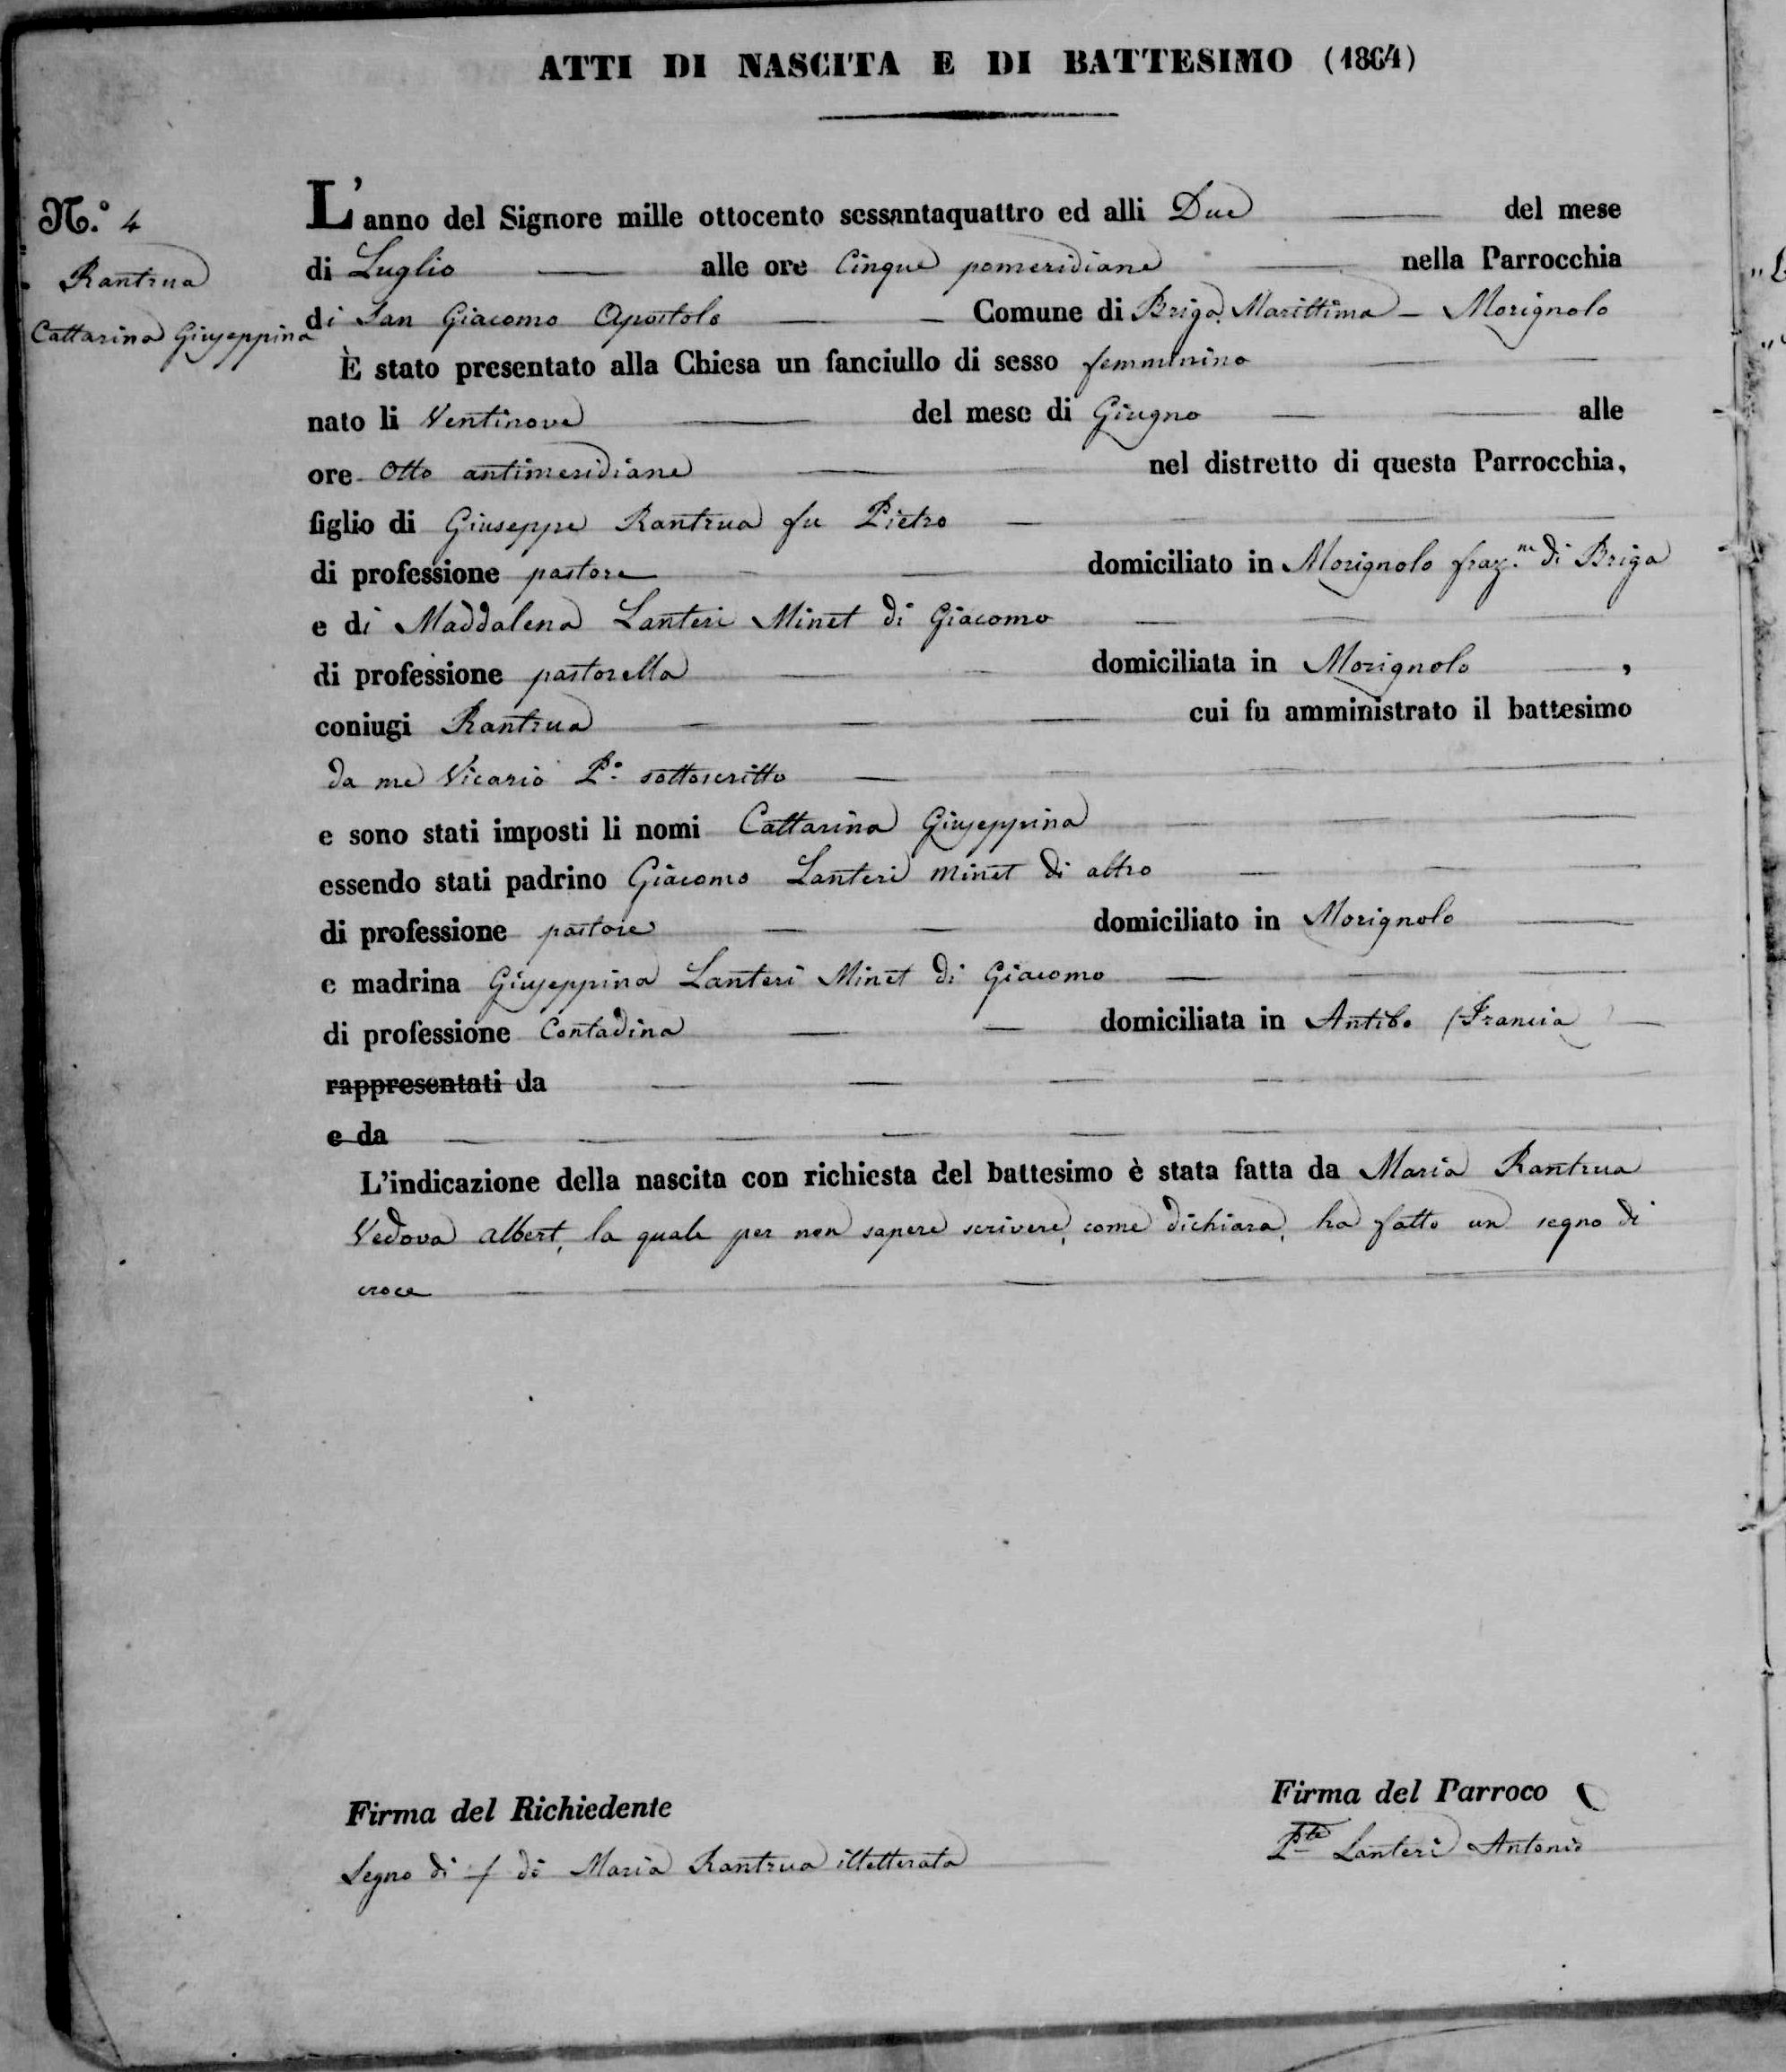 ATTI DI NASCITA E DI BATTESIMO (1864)
N.º 4
Rantrua
Cattarina Giuseppina
L'anno del Signore mille ottocento sessantaquattro ed alli Due del mese
di Luglio alle ore Cinque pomeridiane nella Parrocchia
di San Giacomo Apostolo Comune di Briga Marittima - Morignolo
È stato presentato alla Chiesa un fanciullo di sesso femminino
nato li Ventinove del mese di Giugno alle
ore Otto antimeridiane nel distretto di questa Parrocchia,
figlio di Giuseppe Rantrua fu Pietro
di professione pastore domiciliato in Morignolo fraz.ne di Briga
e di Maddalena Lanteri Minet di Giacomo
di professione pastorella domiciliata in Morignolo ,
coniugi Rantrua cui fu amministrato il battesimo
da me Vicario P.o sottoscritto
e sono stati imposti li nomi Cattarina Giuseppina
essendo stati padrino Giacomo Lanteri Minet di altro
di professione pastore domiciliato in Morignolo
e madrina Giuseppina Lanteri Minet di Giacomo
di professione Contadina domiciliata in Antibo (Francia)
rappresentati da
e da
L'indicazione della nascita con richiesta del battesimo è stata fatta da Maria Rantrua
Vedova Albert, la quale per non sapere scrivere, come dichiara, ha fatto un segno di
croce
Firma del Richiedente
Segno di + di Maria Rantrua illetterata
Firma del Parroco
P.te Lanteri Antonio